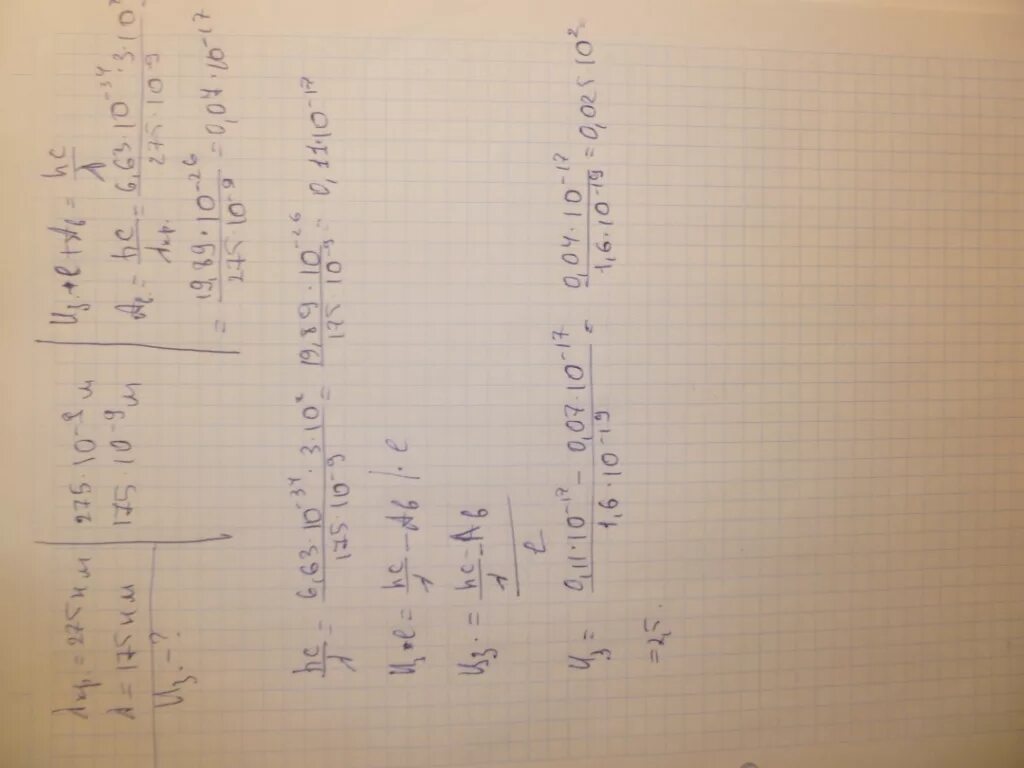 λкр. = 275 нм | 275·10⁻⁹ м | Uз·e + Aв = hc/λ
λ = 175 нм | 175·10⁻⁹ м | Aв = hc/λкр. = 6,63·10⁻³⁴·3·10⁸/275·10⁻⁹
Uз. - ? | = 19,89·10⁻²⁶/275·10⁻⁹ = 0,07·10⁻¹⁷
hc/λ = 6,63·10⁻³⁴·3·10⁸/175·10⁻⁹ = 19,89·10⁻²⁶/175·10⁻⁹ = 0,11·10⁻¹⁷
Uз·e = hc/λ - Aв /·e
Uз. = hc/λ - Aв/e
Uз = 0,11·10⁻¹⁷ - 0,07·10⁻¹⁷/1,6·10⁻¹⁹ = 0,04·10⁻¹⁷/1,6·10⁻¹⁹ = 0,025 10²
= 2,5.